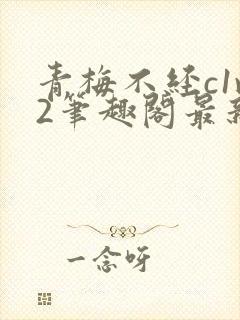 青梅不经c1v
2笔趣阁最新
一念呀